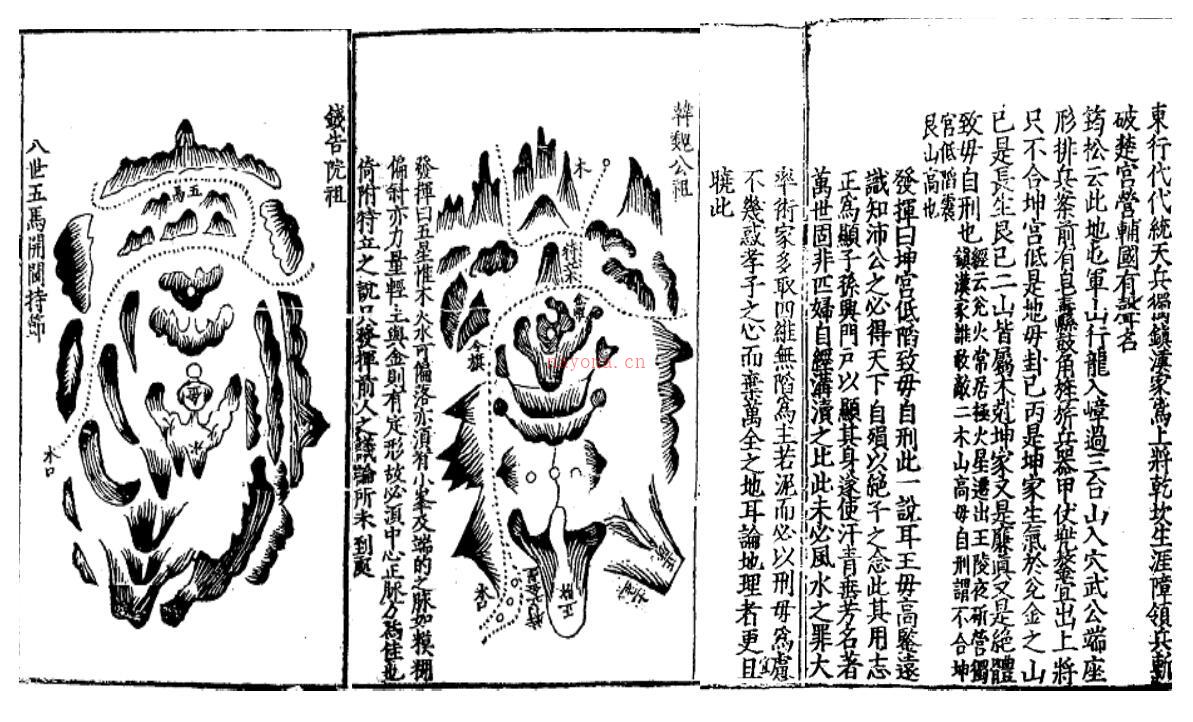 東行代代統天兵獨鎮漢家爲上將乾坎生涯障領兵斬
破楚宮營輔國有聲名
筠松云此地屯軍山行龍入嶂過三台山入穴武公端座
形排兵案前有皀纛縣鼓角旌旂兵器甲伏輦蓋宜出上將
只不合坤宮低是地母卦已丙是坤家生氣於兌金之山
已是長生艮已二山皆屬木剋坤家又是廉真又是絕體
致母自刑也
經云兌火常居極火星遷出王陵夜斫營獨
鎮漢家誰敢敵二木山高母自刑謂不合坤
宮低陷裏
艮山高也
發揮曰坤宮低陷致母自刑此一說耳王母高鑒遠
識知沛公之必得天下自殞以絕子之念此其用志
正爲顯子孫興門戶以顯其身遂使汗青垂芳名著
萬世固非匹婦自經溝瀆之比此未必風水之罪大
率術家多取四維無陷爲主若泥而必以刑母爲慮
不幾惑孝子之心而棄萬全之地耳論地理者更且
曉此
韓魏公祖
木
特案
金旗
水口
正
發揮曰五星惟木火水可偏落亦須有小峯及端的之脉如模糊
偏射亦力量輕土與金則有定形故必頂中心正脉久爲佳也
倚附特立之說只發揮前人之議論所未到處
錢告院祖
五馬
水口
八世五馬開閫持節
nayona.cn